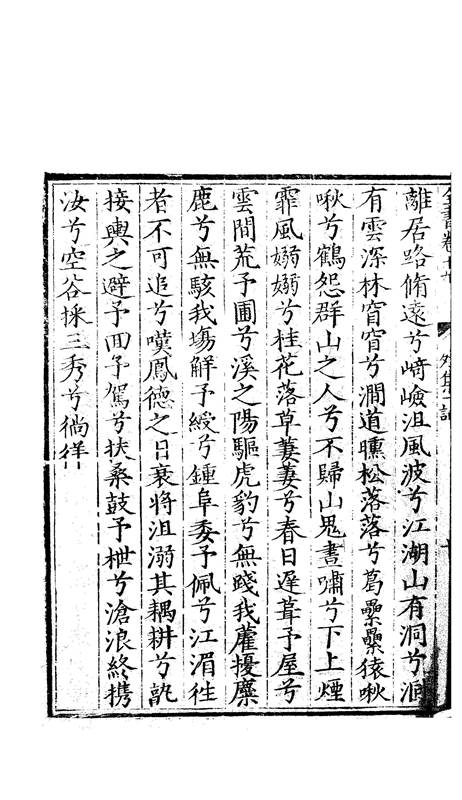 離居路脩遠兮崎嶮沮風波兮江湖山有洞兮洞
有雲深林窅窅兮澗道曛松落落兮葛纍纍猿啾
啾兮鶴怨群山之人兮不歸山鬼晝嘯兮下上煙
霏風嫋嫋兮桂花落草萋萋兮春日遲葺予屋兮
雲間荒予圃兮溪之陽驅虎豹兮無踐我藿擾麋
鹿兮無駭我塲解予綬兮鍾阜委予佩兮江湄往
者不可追兮嘆鳳德之日衰將沮溺其耦耕兮
接輿之避予回予駕兮扶桑鼓予枻兮滄浪終携
汝兮空谷採三秀兮徜徉